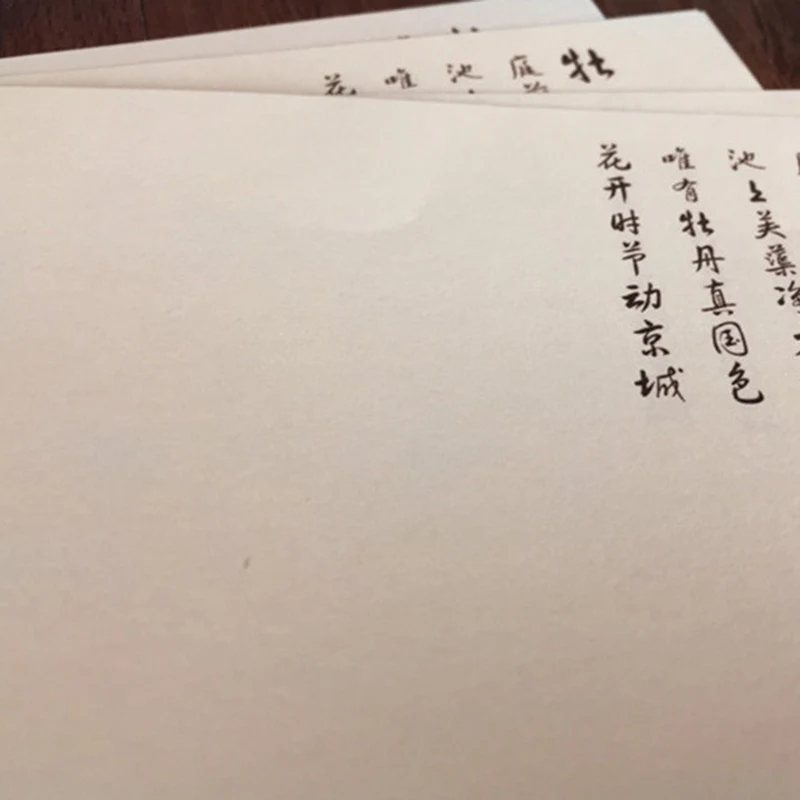 牡
庭
池
唯
花
池上芙蕖净
唯有牡丹真国色
花开时节动京城